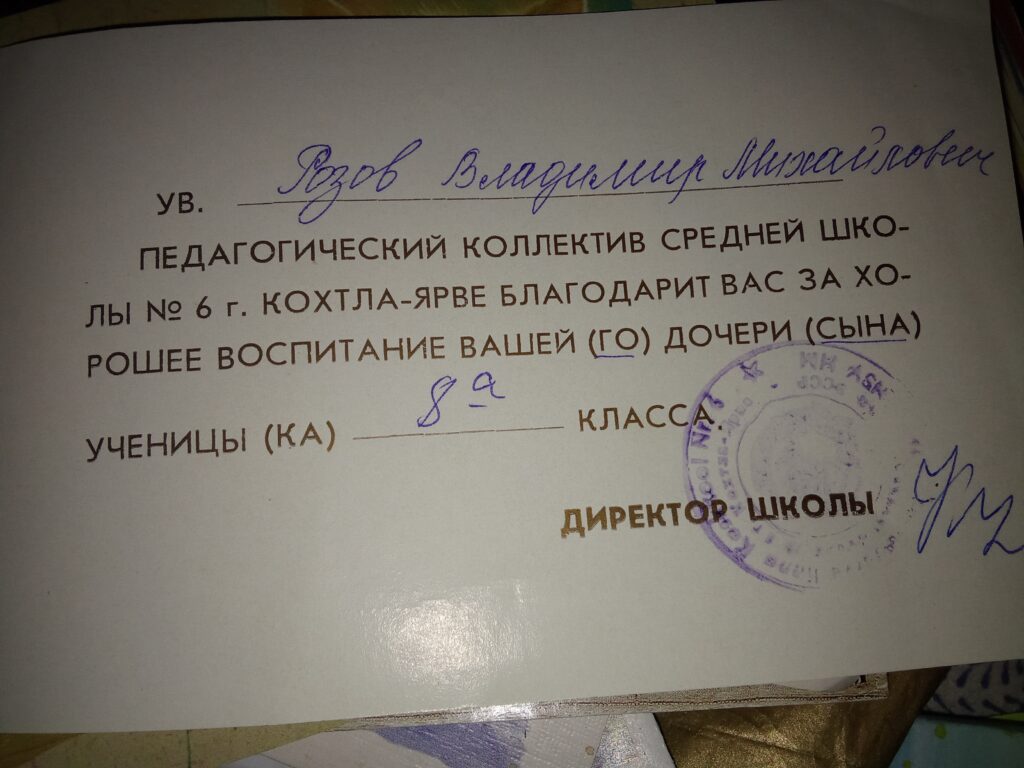 УВ. Розов Владимир Михайлович
ПЕДАГОГИЧЕСКИЙ КОЛЛЕКТИВ СРЕДНЕЙ ШКО-
ЛЫ № 6 г. КОХТЛА-ЯРВЕ БЛАГОДАРИТ ВАС ЗА ХО-
РОШЕЕ ВОСПИТАНИЕ ВАШЕЙ (ГО) ДОЧЕРИ (СЫНА)
УЧЕНИЦЫ (КА) 8а КЛАССА.
ДИРЕКТОР ШКОЛЫ
NSV MM